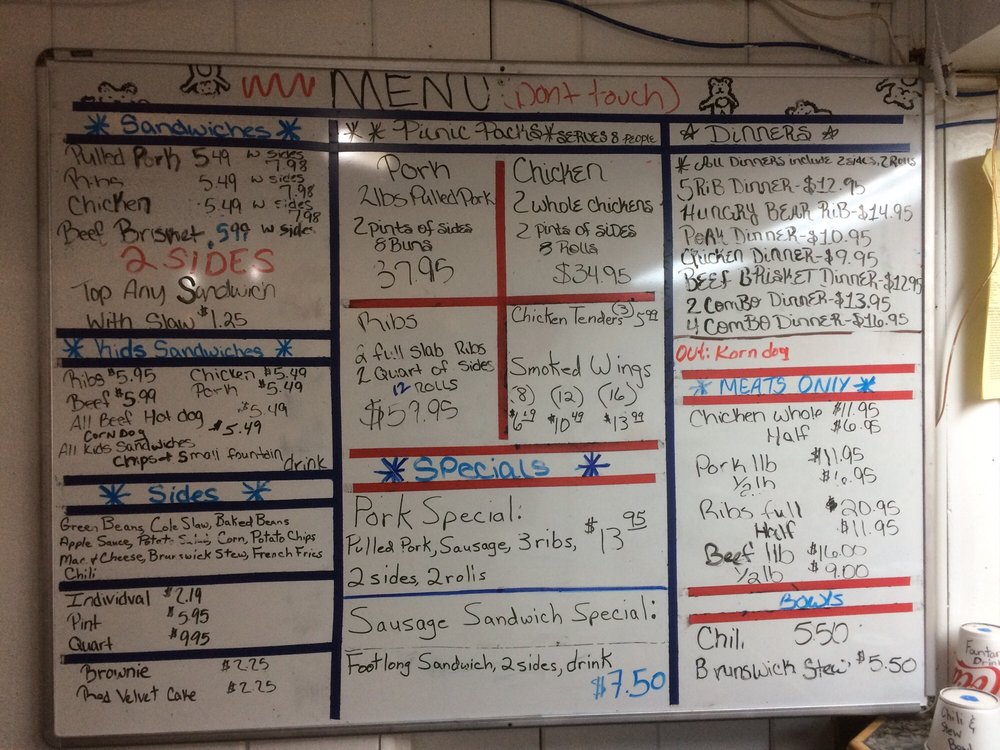 MENU (Don't touch)
* Sandwiches *
Pulled Pork 5.49 w sides 7.98
Ribs 5.49 w sides 7.98
Chicken 5.49 w sides 7.98
Beef Brisket 5.99 w sides
2 SIDES
Top Any Sandwich
With Slaw $1.25
* Kids Sandwiches *
Ribs $5.95 Chicken $5.49
Beef $5.99 Pork $5.49
All Beef Hot dog $5.49
Corn Dog $5.49
All Kids Sandwiches
Chips & Small fountain drink
* Sides *
Green Beans, Cole Slaw, Baked Beans
Apple Sauce, Potato Corn, Potato Chips
Mac & Cheese, Brunswick Stew, French Fries
Chili
Individual $2.19
Pint $5.95
Quart $9.95
Brownie $2.25
Red Velvet Cake $2.25
* * Picnic Packs * SERVES 8 PEOPLE
Pork
2lbs Pulled Pork
2 pints of sides
8 Buns
37.95
Chicken
2 whole chickens
2 pints of sides
8 Rolls
$34.95
Ribs
2 full slab Ribs
2 Quart of sides
12 Rolls
$59.95
Chicken Tenders (3) 5.99
Smoked Wings
(8) (12) (16)
$10.49 $13.99
* Specials *
Pork Special:
Pulled Pork, Sausage, 3 ribs, $13.95
2 sides, 2 rolls
Sausage Sandwich Special:
Footlong Sandwich, 2 sides, drink
$7.50
☆ DINNERS ☆
* All Dinners include 2 sides, 2 Rolls
5 RIB DINNER-$12.95
HUNGRY BEAR RIB-$14.95
PORK DINNER-$10.95
Chicken DINNER-$9.95
BEEF BRISKET DINNER-$12.95
2 COMBO DINNER-$13.95
4 COMBO DINNER-$16.95
OUT: Korn dog
* MEATS ONLY *
Chicken whole $11.95
Half $6.95
Pork 1lb $11.95
1/2lb $6.95
Ribs full $20.95
Half $11.95
Beef 1lb $16.00
1/2lb $9.00
Bowls
Chili 5.50
Brunswick Stew $5.50
Fountain
Drink
Chili &
Stew